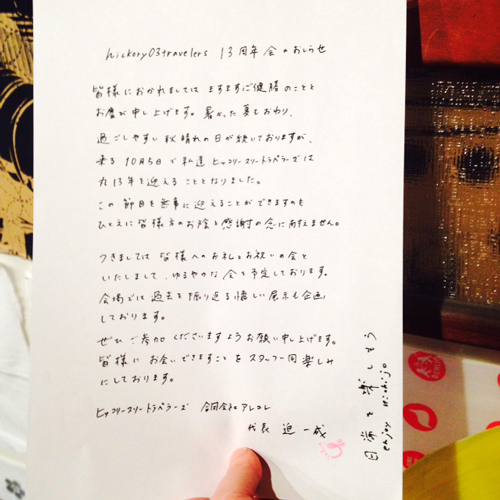 hickory03travelers 13周年会のおしらせ
皆様におかれましては ますますご健勝のことと
お慶び申し上げます。暑かった夏もおわり、
過ごしやすい秋晴れの日が続いておりますが、
来る10月5日で私達 ヒッコリースリートラベラーズは
丸13年を迎えることとなりました。
この節目を無事に迎えることができますのも
ひとえに皆様方のお陰と感謝の念に耐えません。
つきましては 皆様へのお礼とお祝いの会と
いたしまして、ゆるやかな会を予定しております。
会場では過去を振り返る懐しい展示も企画
しております。
ぜひご参加くださいますようお願い申し上げます。
皆様に お会いできますことをスタッフ一同 楽しみ
にしております。
ヒッコリースリートラベラーズ 合同会社アレコレ
代表 迫 一成
日常を楽しもう
enjoy nichijo